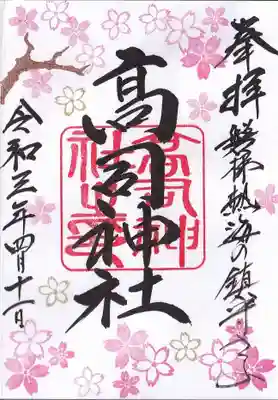 奉拝
磐梯熱海の鎮守さま
髙司神社
令和三年四月十一日